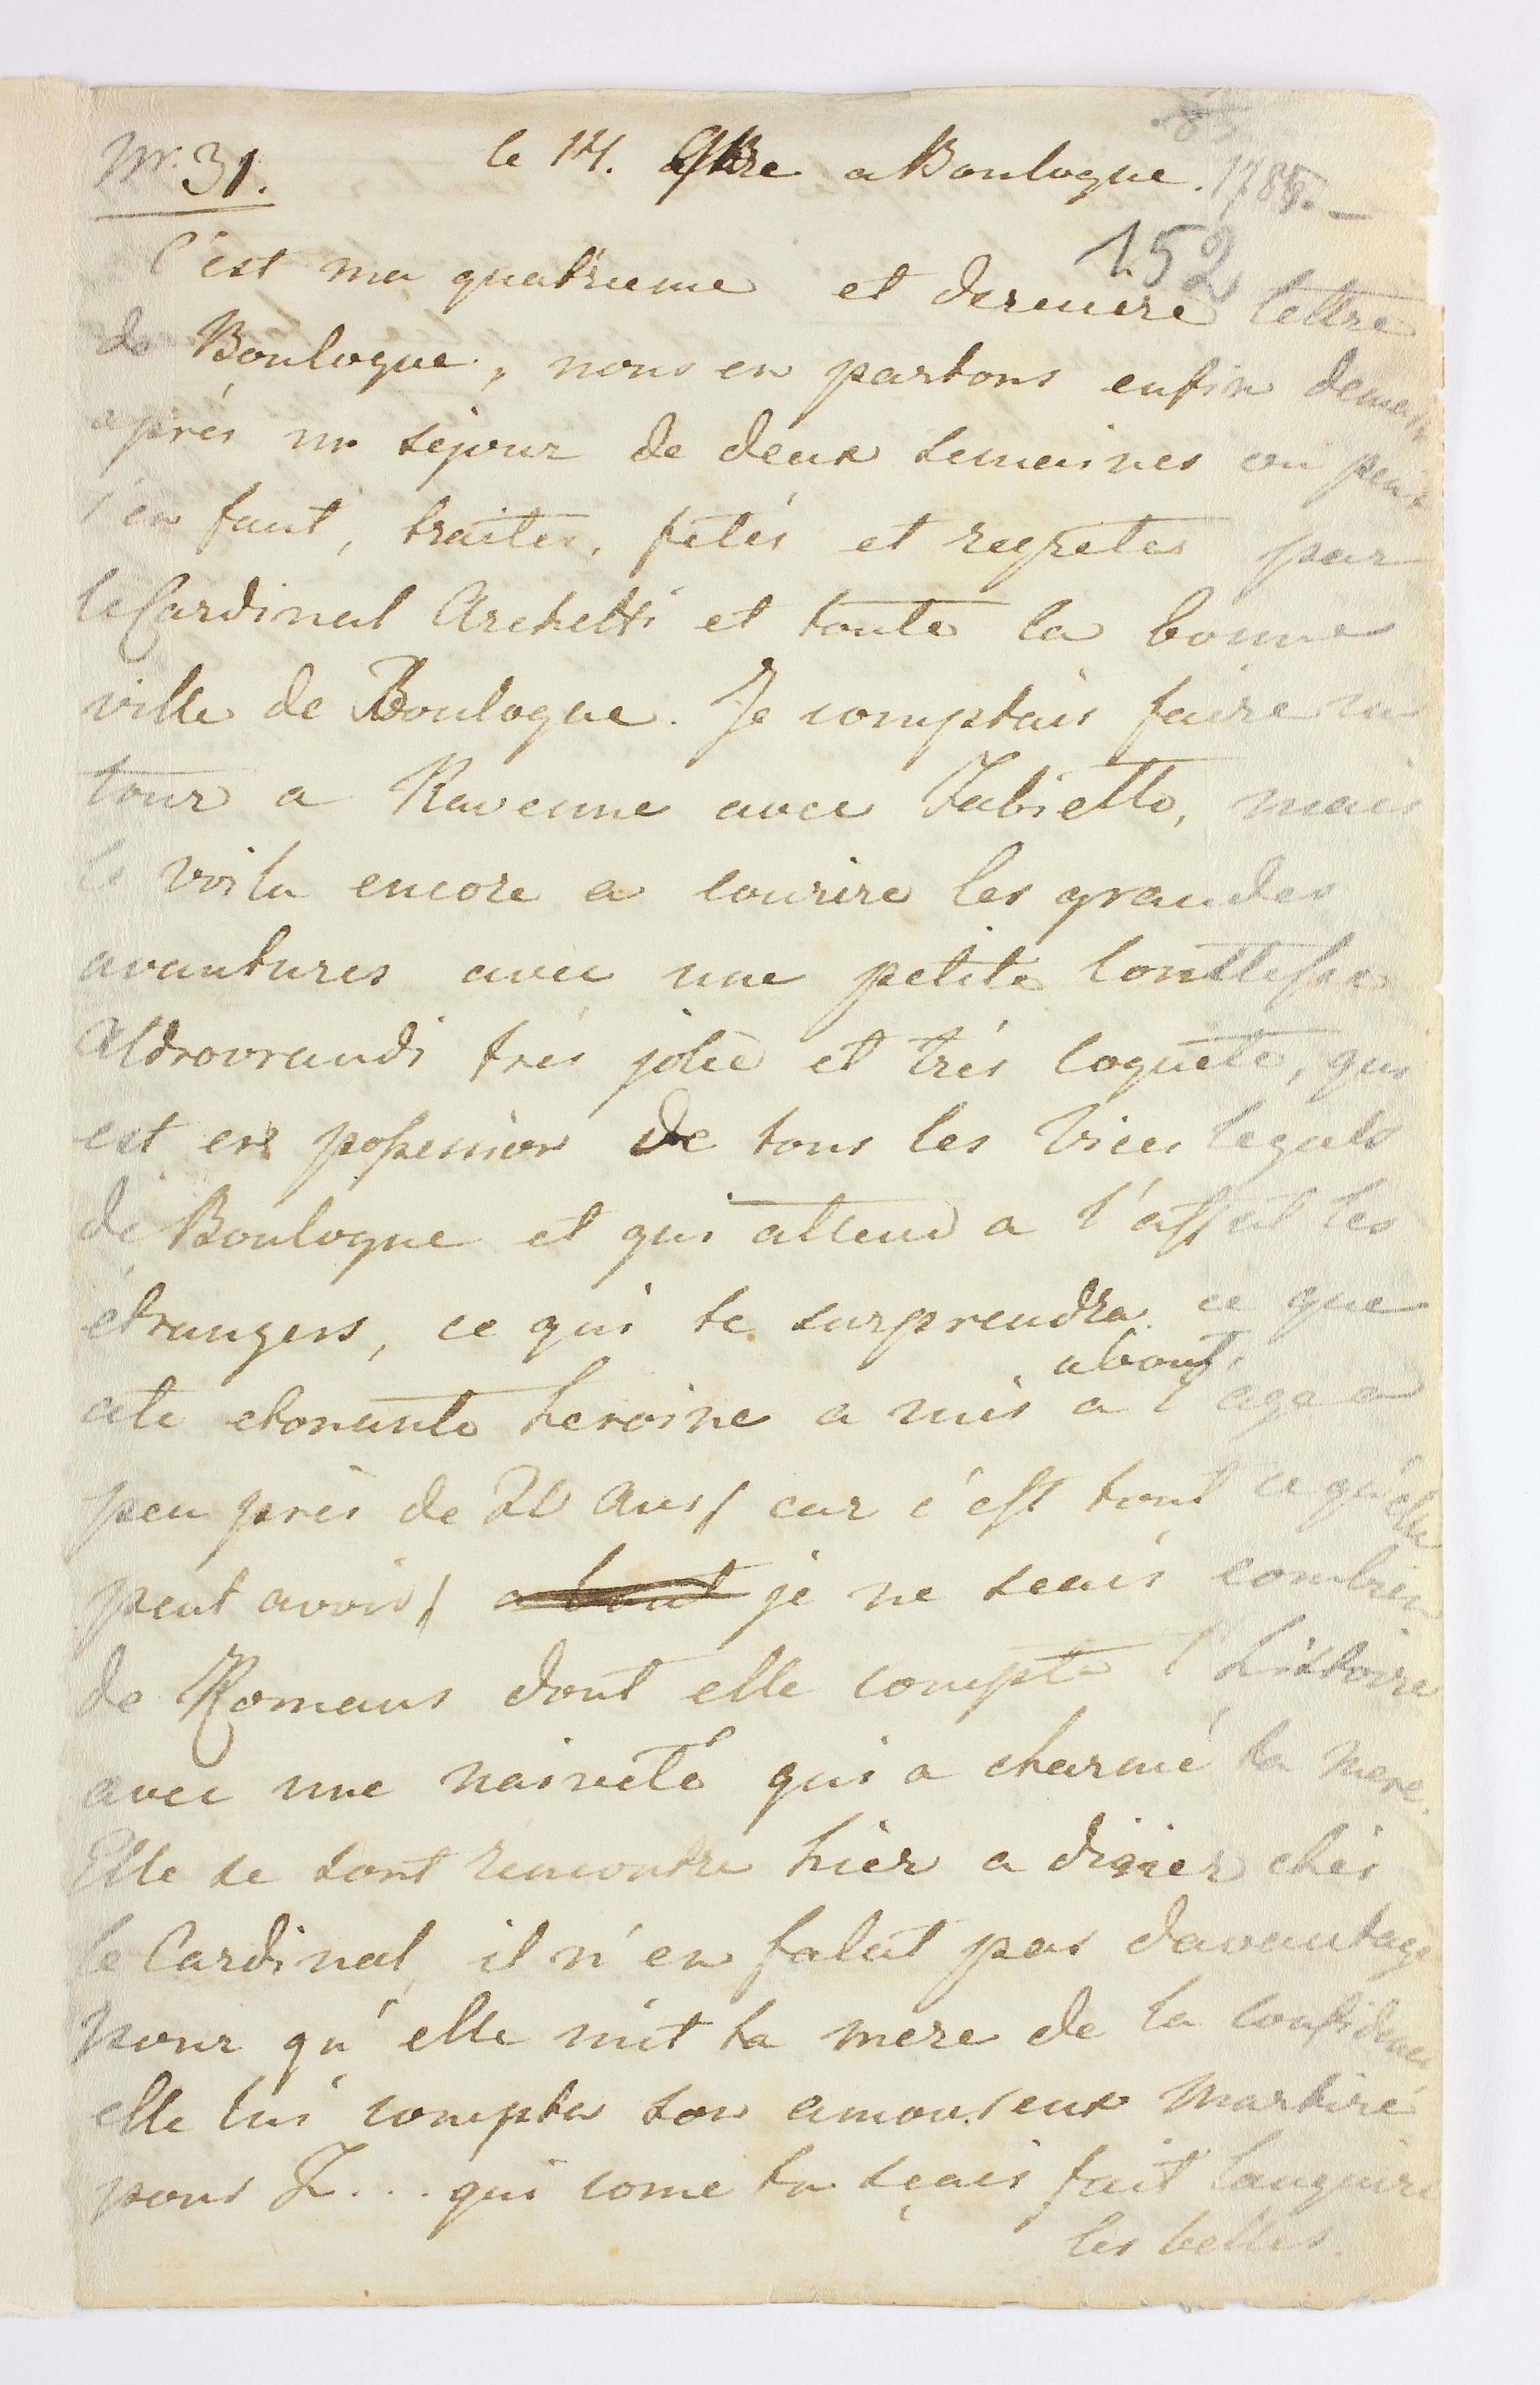 Nr. 31. le 14. 9bre a Boulogne. 1785. —
152
C'est ma quatrieme et derniere lettre
de Boulogne, nous en partons enfin demain
aprés un sejour de deux semaines ou peu
s'en faut, traités, fetés et regretés par
le Cardinal Archetti et toute la bonne
ville de Boulogne. Je comptais faire un
tour a Ravenne avec Fabietto, mais
le voila encore a courire les grandes
avantures avec une petite Conttesse
Aldrovrandi trés jolie et trés coquete, qui
est en possession de tous les Vices legats
de Boulogne et qui attend a l'affut les
étrangers, ce qui te surprendra ce que
cete etonante heroine a mis a l'age a
about
peu prés de 20 ans / car c'est tout ce qu'elle
peut avoir / je ne scais combien
de Romans dont elle compte l'histoire
avec une naiveté qui a charmé ta mere.
Elle se sont rencontre hier a diner chés
le Cardinal, il n'en falut pas davantage
pour qu'elle mit ta mere de la confidence
elle lui compta son amoureux martire
pour F... qui come tu sçais fait languire
les belles.